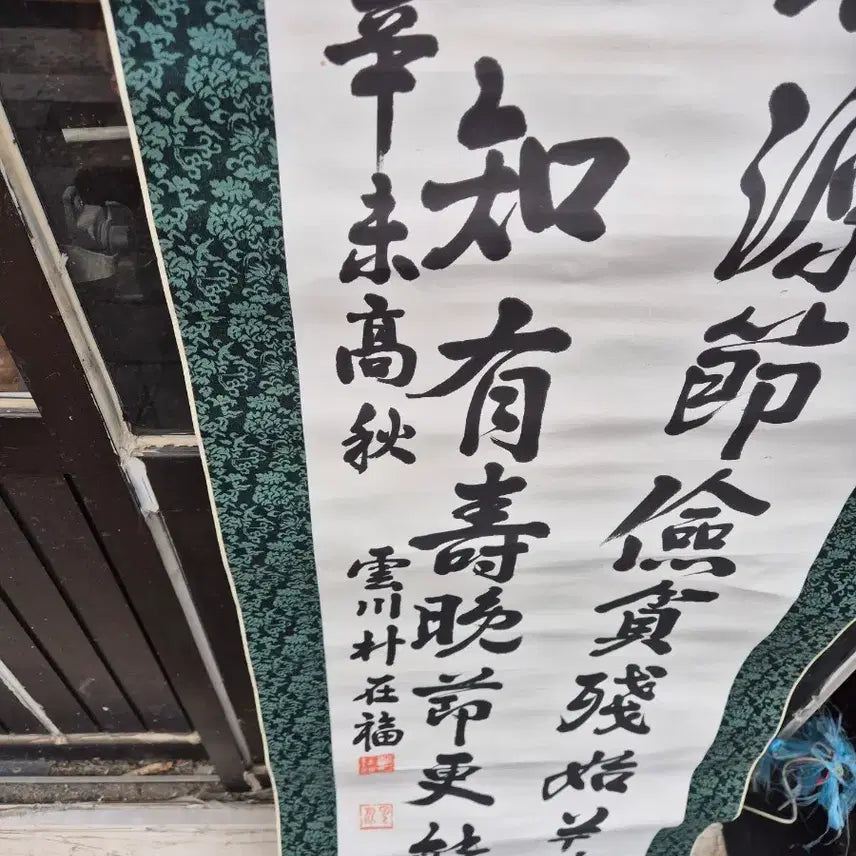 源節儉貪殘始
知有壽晚節更
辛未高秋 雲川朴在福